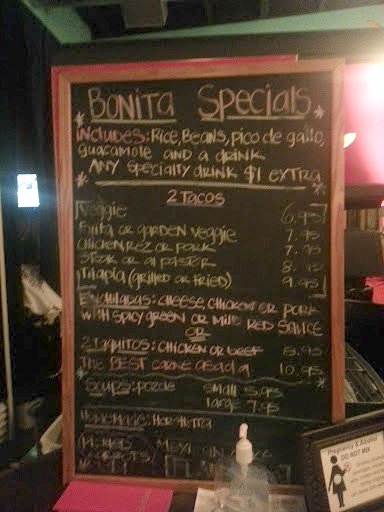 BONITA SPECIALS
INCLUDES: RICE, BEANS, PICO DE GALLO,
GUACAMOLE AND A DRINK
ANY SPECIALTY DRINK $1 EXTRA
2 TACOS
VEGGIE 6.95
FAJITA OR GARDEN VEGGIE 7.95
CHICKEN, REZ OR PORK 7.95
STEAK OR AL PASTOR 8.
TILAPIA (GRILLED OR FRIED) 9.95
ENCHILADAS: CHEESE CHICKEN OR PORK
WITH SPICY GREEN OR MILD RED SAUCE
OR
2 TAQUITOS: CHICKEN OR BEEF 8.95
THE BEST CARNE ASADA 10.95
SOUPS: POZOLE SMALL 5.95
LARGE 7.95
HOMEMADE: HORCHATA
Pregnancy & Alcohol
DO NOT MIX